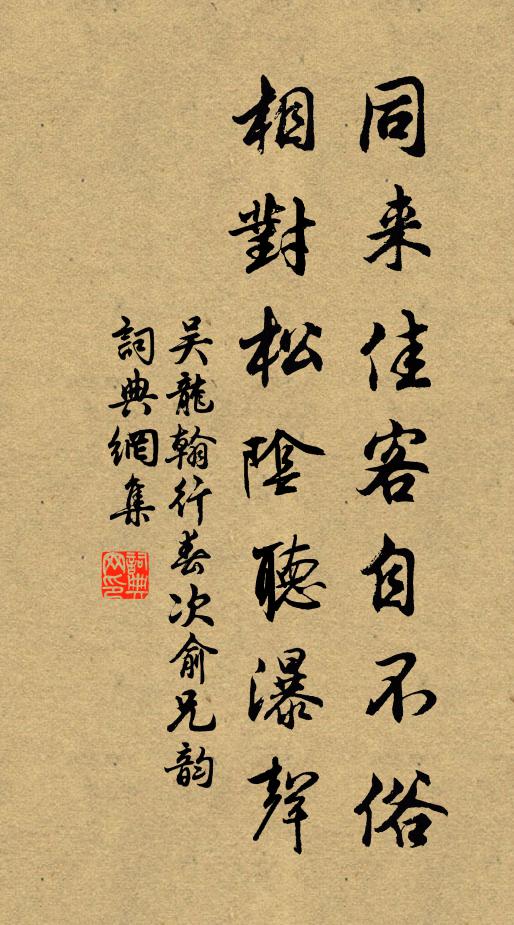 同来佳客自不俗
相對松陰聽瀑聲
吴龍翰行春次俞兄韵
詞典網集
詞典网印